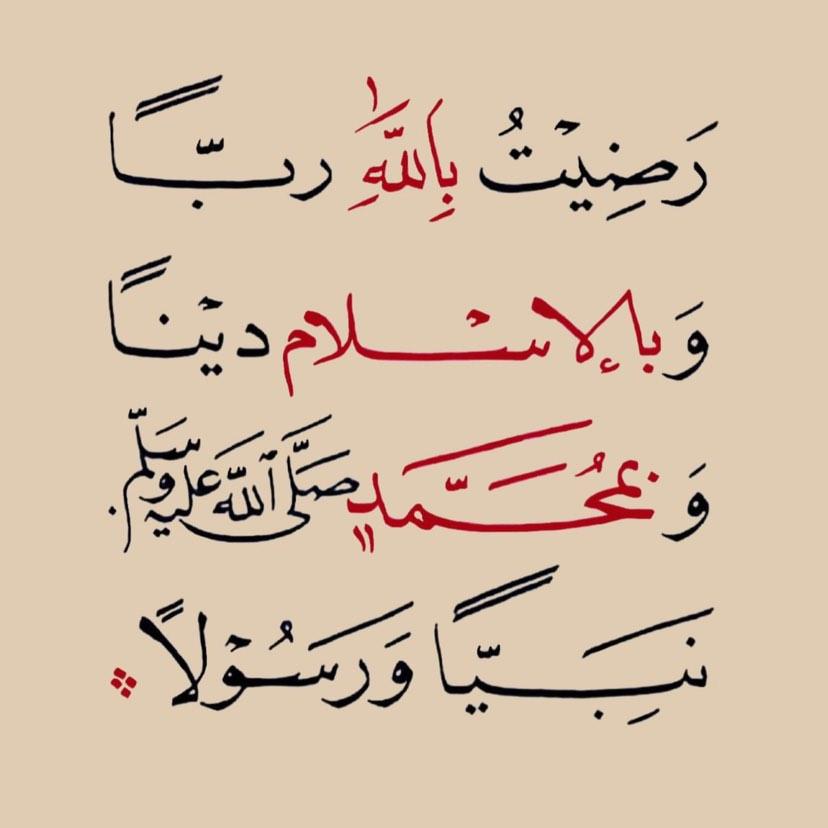 رَضِيْتُ بِاللّٰهِ ربًّا
وَبالإسْلام ديْنًا
وَبمُحَمَّدٍ صَلَّى اللّٰه عَليْه وسَلَّم
نَبِيًّا وَرَسُوْلًا